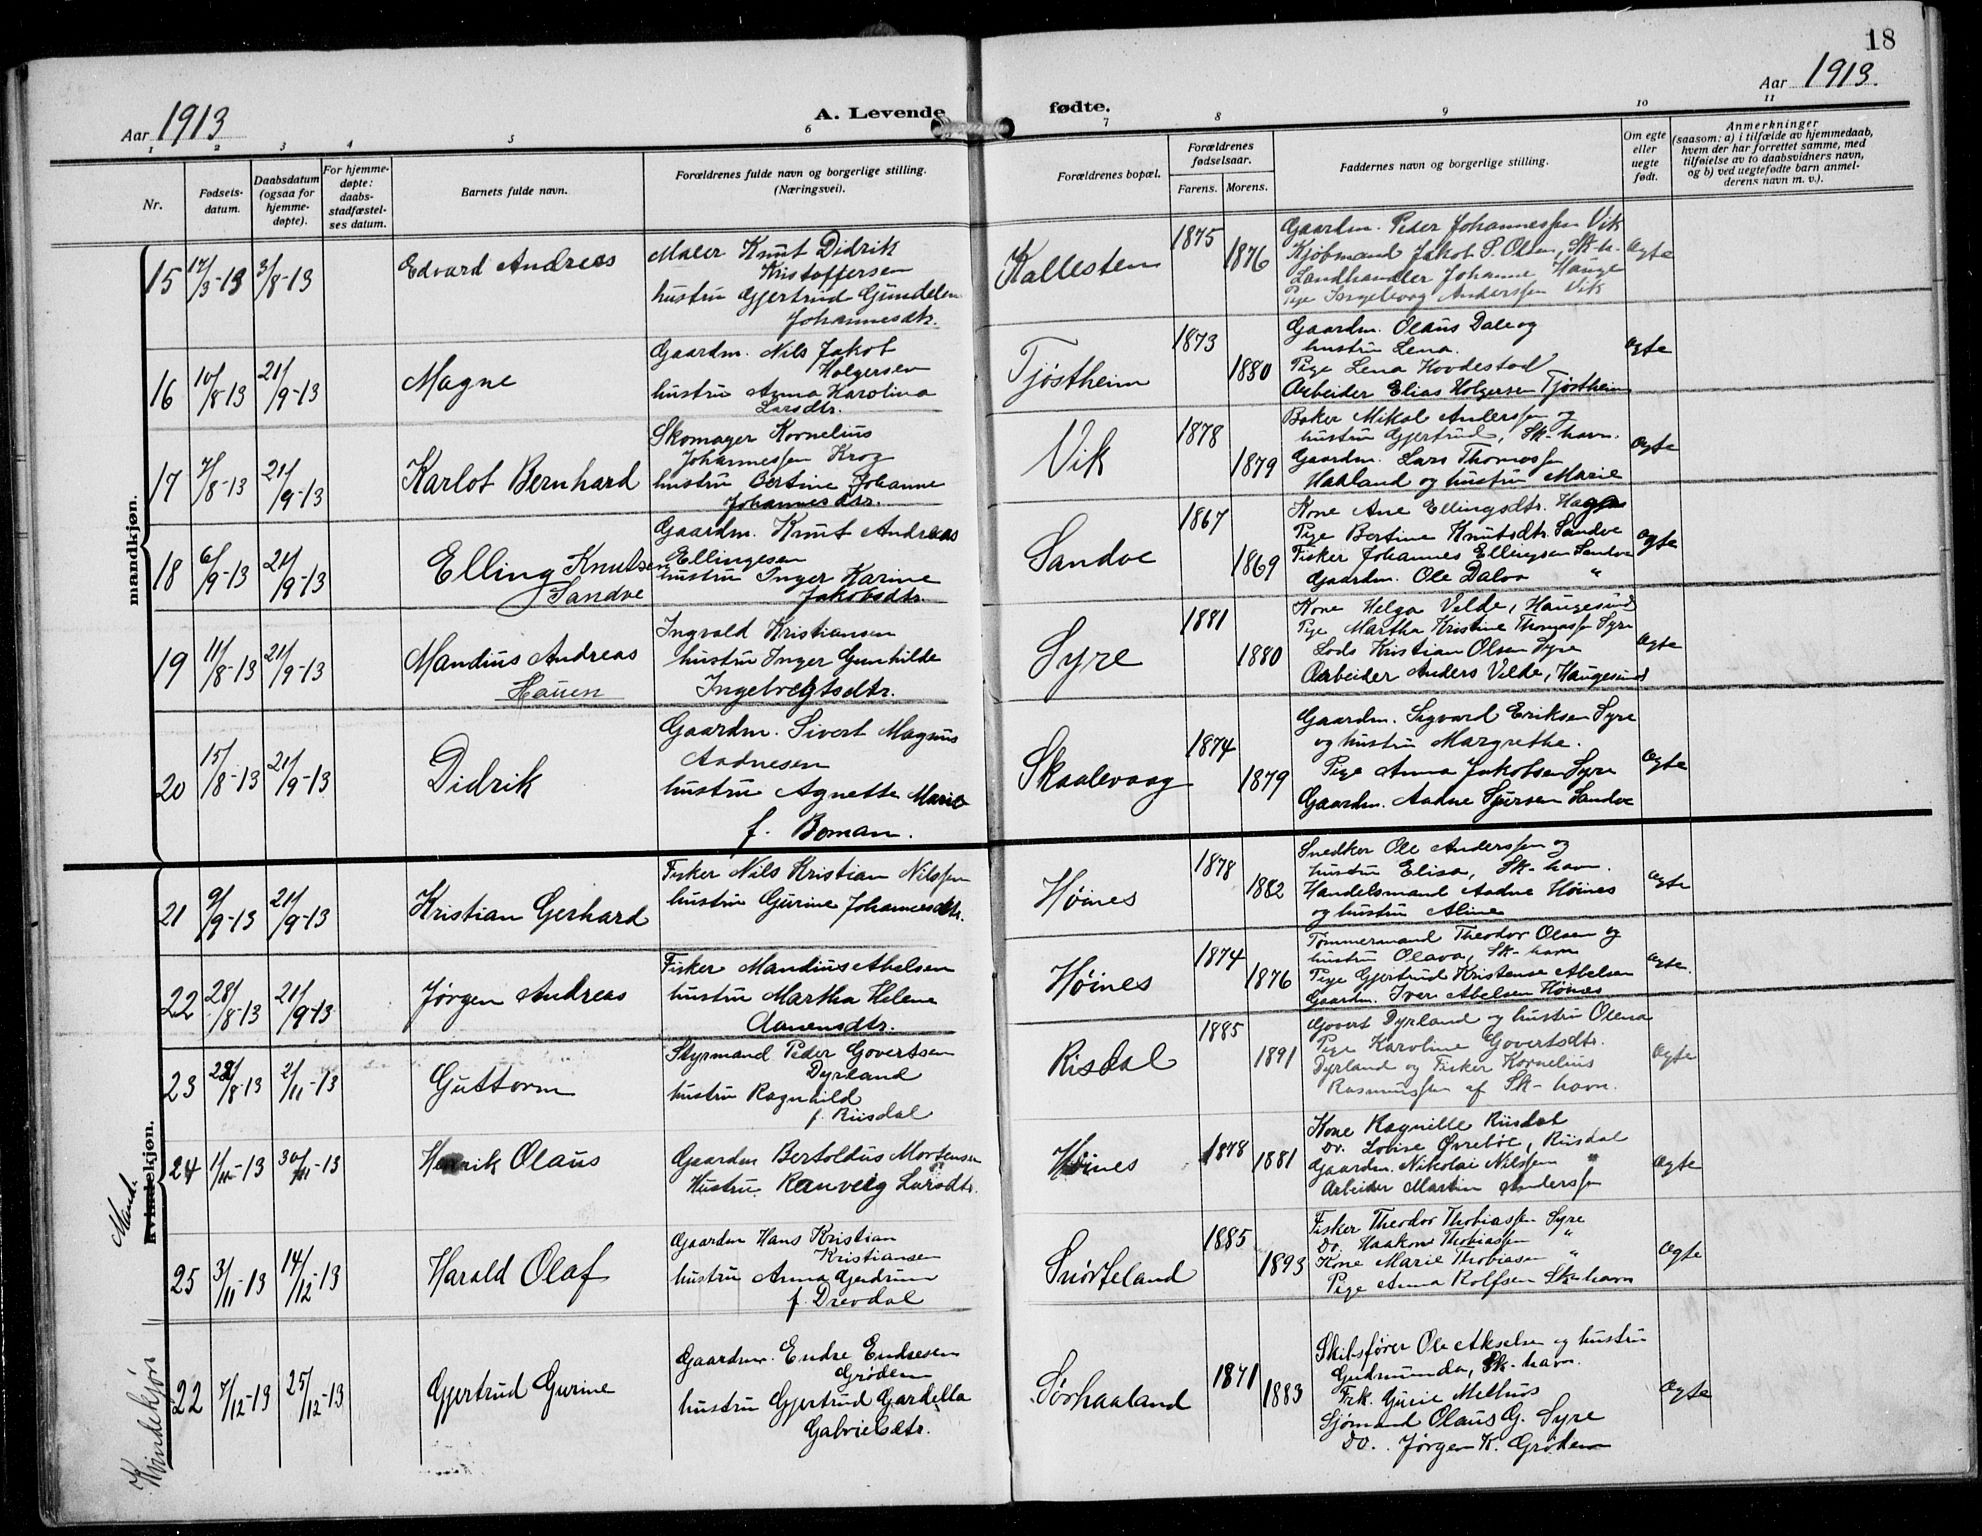 18
Aar 1913
A. Levende fødte.
Aar 1913.
1 2 3 4 5 6 7 8 9 10 11
Nr.
Fødsels-
datum.
Daabsdatum
(ogsaa for
hjemme-
døpte).
For hjemme-
døpte:
daabs-
stadfæstel-
ses datum.
Barnets fulde navn.
Forældrenes fulde navn og borgerlige stilling.
(Næringsvei).
Forældrenes bopæl.
Forældrenes
fødselsaar.
Farens. Morens.
Faddernes navn og borgerlige stilling.
Om egte
eller
uegte
født.
Anmerkninger
(saasom: a) i tilfælde av hjemmedaab,
hvem der har forrettet samme, med
tilføielse av to daabsvidners navn,
og b) ved uegtefødte barn anmel-
derens navn m. v.).
mandkjøn.
15 17/3-13 3/8-13 Edvard Andreas
Maler Knut Didrik
Kristoffersen
hustru Gjertrud Gundelen
Johannesdtr.
Kallesten 1875 1876
Gaardm. Peder Johannessen Vik
Kjøbmand Jakob S. Olsen, Sk-h.
Landhandler Johanne Hauge
Pige Ingeborg Anderssen Vik
Ægte
16 10/8-13 21/9-13 Magne
Gaardm. Nils Jakob
Holgersen
hustru Anna Karolina
Larsdtr.
Tjøstheim 1873 1880
Gaardm. Olaus Dale og
hustru Lena.
Pige Lena Hovdestad
Arbeider Elias Holgersen Tjøstheim
Ægte
17 7/8-13 21/9-13 Karlot Bernhard
Skomager Kornelius
Johannessen Krog
hustru Bertine Johanne
Johannesdtr.
Vik 1878 1879
Baker Mikal Anderssen og
hustru Gjertrud, Sk-havn.
Gaardm. Lars Thomassen
Haaland og hustru Marie
Ægte
18 6/9-13 21/9-13 Elling Knutsen
Sandve
Gaardm. Knut Andreas
Ellingesen
hustru Inger Karine
Jakobsdtr.
Sandve 1867 1869
Kone Ane Ellingsdtr.
Pige Bertine Knutsdtr. Sandve
Fisker Johannes Ellingsen Sandve
Gaardm. Ole Dalva "
Ægte
19 11/8-13 21/9-13 Mandius Andreas
Hauen
Ingvald Kristiansen
hustru Inger Gunhilde
Ingebregtsdtr.
Syre 1881 1880
Kone Helga Velde, Haugesund
Pige Martha Kristine Thomassen Syre
Lods Kristian Olsen Syre
Arbeider Anders Velde, Haugesund
Ægte
20 15/8-13 21/9-13 Didrik
Gaardm. Sivert Magnus
Aadnesen
hustru Agnette Marie
f. Boman.
Skaalevaag 1874 1879
Gaardm. Sigvard Eriksen Syre
og hustru Margrethe.
Pige Anna Jakobsen Syre
Gaardm. Aadne Sjursen Sandve
Ægte
Mand.
kvindekjøn.
21 9/9-13 21/9-13 Kristian Gerhard
Fisker Nils Kristian Nilssen
hustru Gurine Johannesdtr.
Høines 1878 1882
Snedker Ole Anderssen og
hustru Elisa, Sk-havn.
Handelsmand Aadne Høines
og hustru Aline
Ægte
22 28/8-13 21/9-13 Jørgen Andreas
Fisker Mandius Abelsen
hustru Martha Helene
Aanensdtr.
Høines 1874 1876
Tømmermand Theodor Olsen og
hustru Olava, Sk-havn
Pige Gjertrud Kristense Abelsen
Gaardm. Iver Abelsen Høines
Ægte.
23 22/8-13 2/11-13 Guttorm
Styrmand Peder Govertsen
Dyrland
hustru Ragnhild
f. Riisdal
Risdal 1885 1891
Govert Dyrland og hustru Olena
Pige Karoline Govertsdtr.
Dyrland og Fisker Kornelius
Rasmussen af Sk-havn.
Ægte
24 1/10-13 30/11-13 Henrik Olaus
Gaardm Bertoldus Mortensen
Hustru Ranveig Larsdtr.
Høines 1878 1881
Kone Ragnille Riisdal
Do. Lovise Øvrebøe, Riisdal
Gaardm. Nikolai Nilssen "
Arbeider Martin Anderssen
Ægte
25 3/11-13 14/12-13 Harald Olaf
Gaardm Hans Kristian
Kristiansen
hustru Anna Gudrun
f. Drevdal
Snørteland 1885 1893
Fisker Theodor Thobiassen Syre
Do. Haakon Thobiassen "
Kone Marie Thobiasen "
Pige Anna Rolfsen Sk-havn
Ægte
Kvindekjøn "
22 7/12-13 25/12-13 Gjertrud Gurine
Gaardm. Endre Endresen
Grødem
hustru Gjertrud Gardella
Gabrielsdtr.
Sørhaaland 1871 1883
Skibsfører Ole Akselsen og hustru
Gudmunda, Sk-havn.
Frk. Gurie Melhus
Sjømand Olaus G. Syre
Do. Jørgen K. Grødem
Ægte